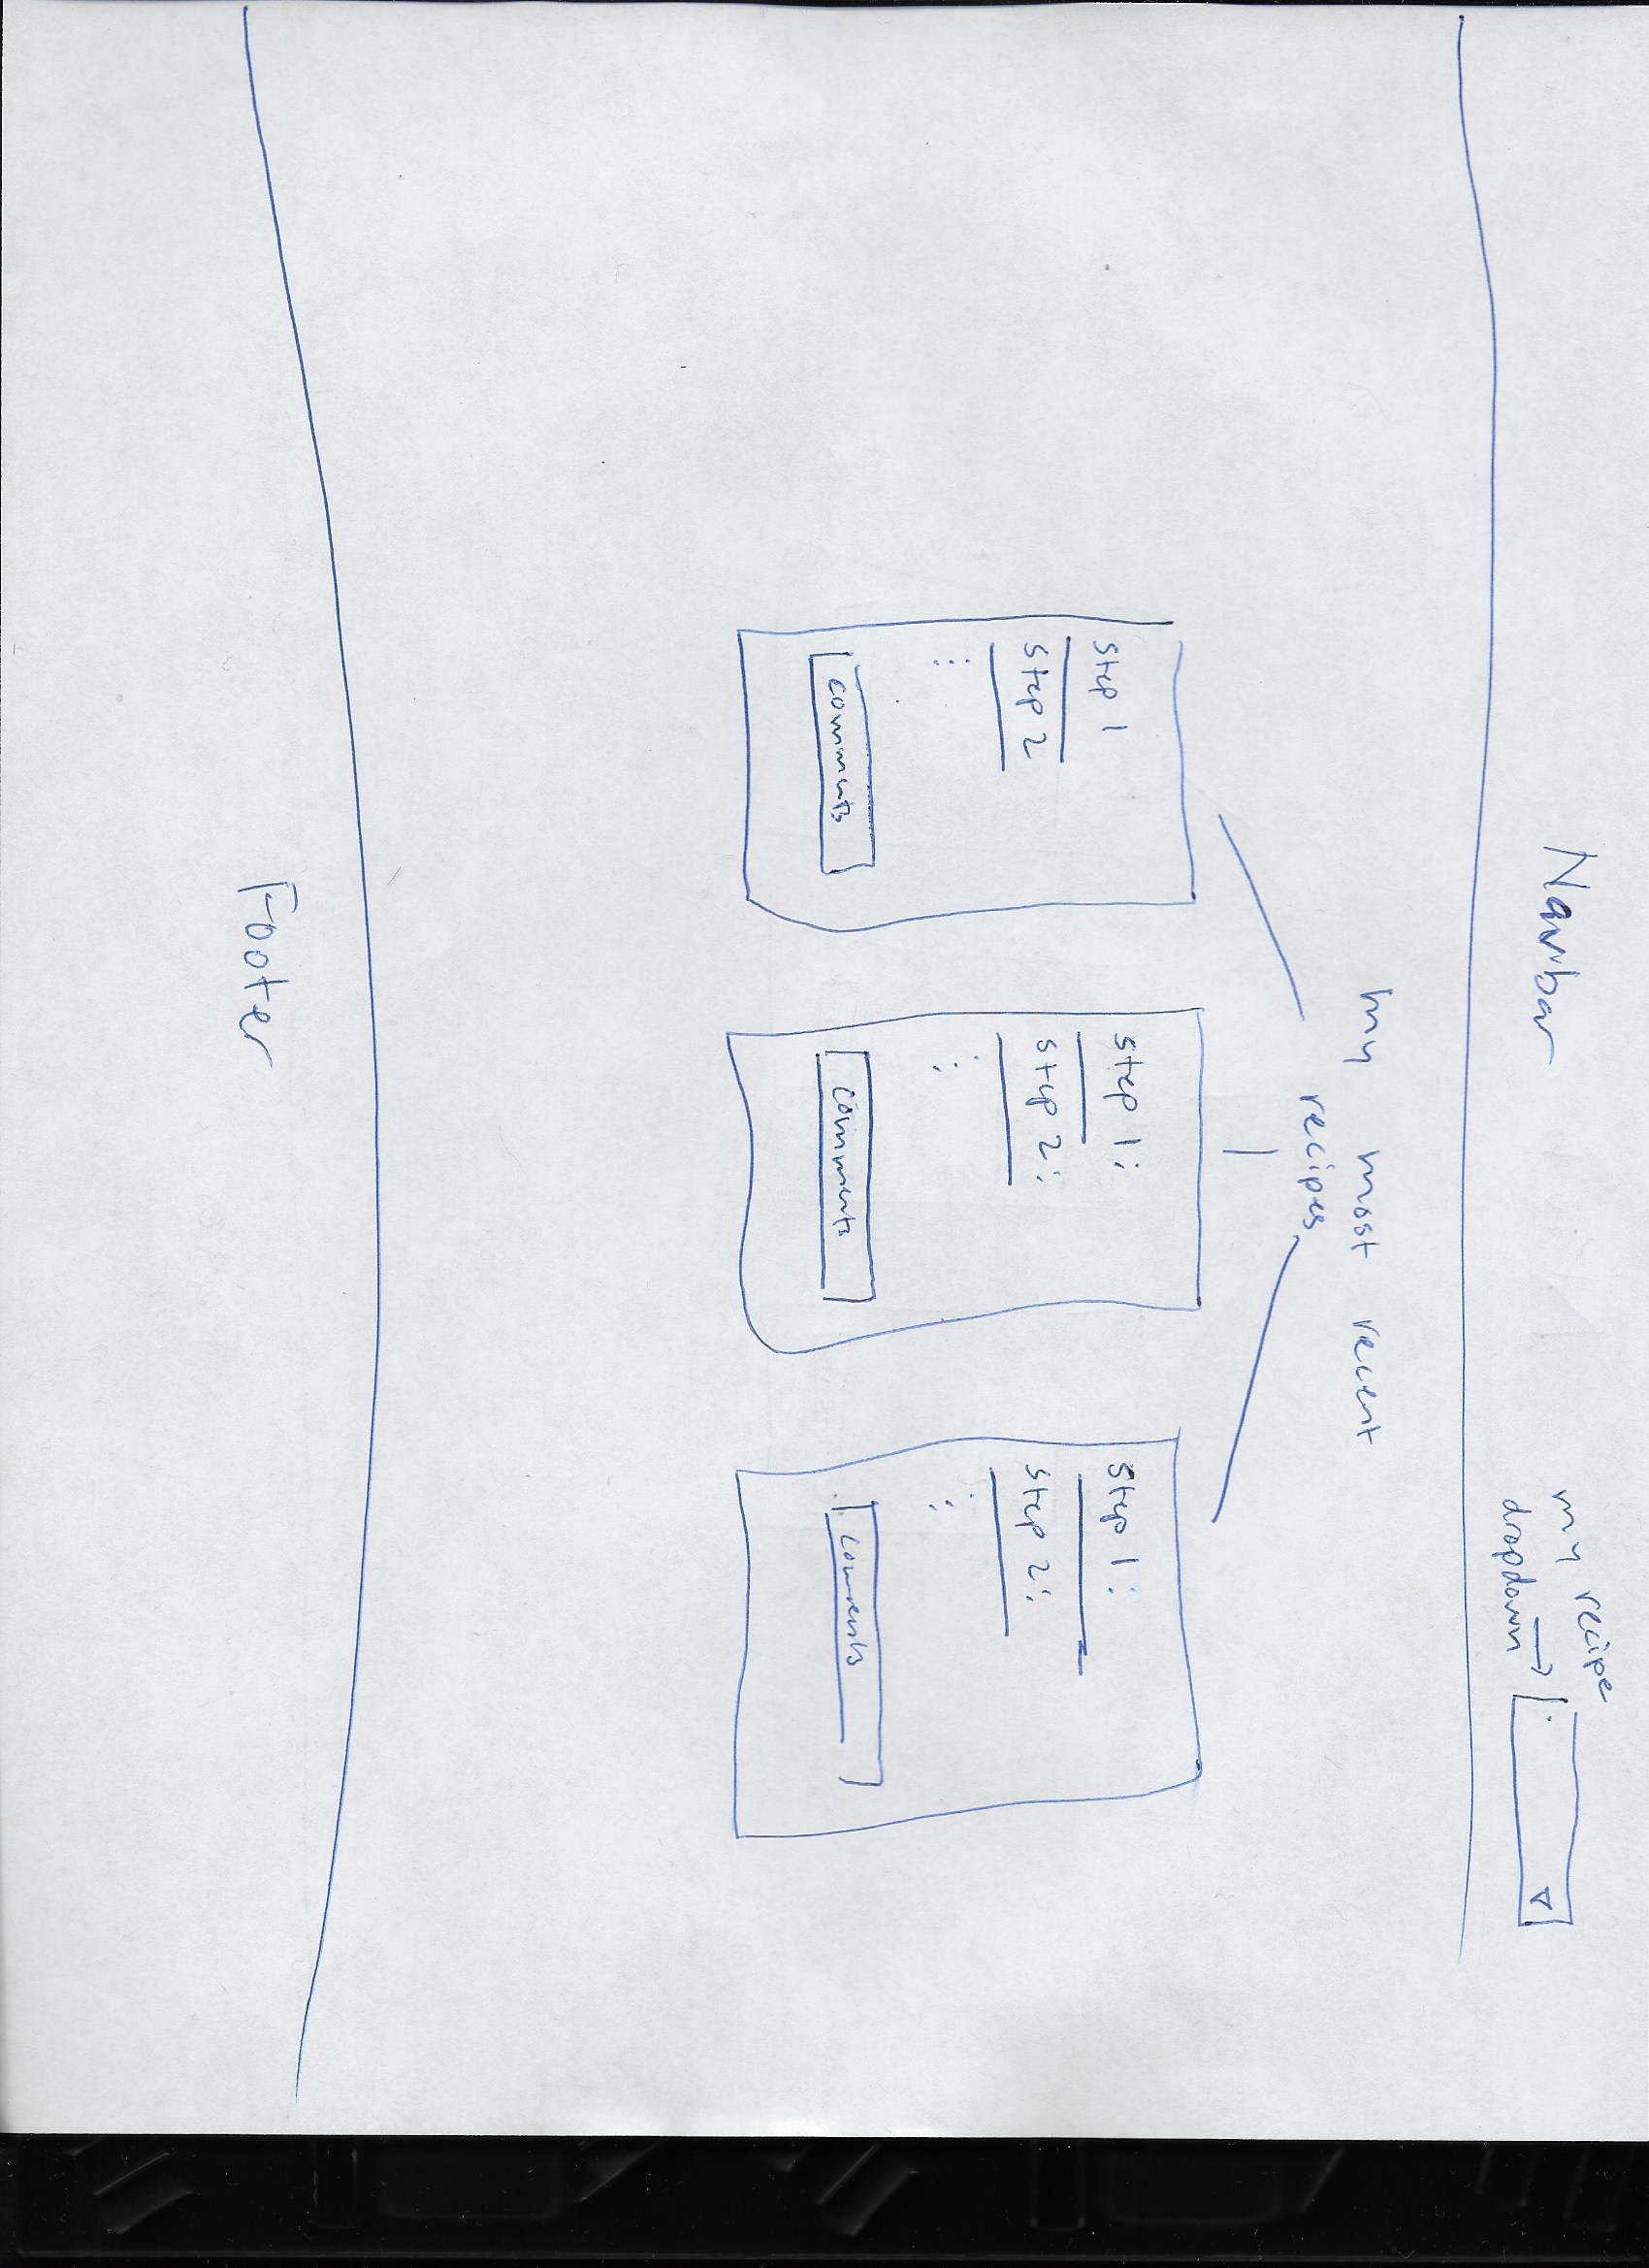 Navbar
my recipe
dropdown →
my most recent
recipes
Step 1
Step 2
⋮
comments
Step 1:
Step 2:
⋮
comments
Step 1:
Step 2:
⋮
comments
Footer